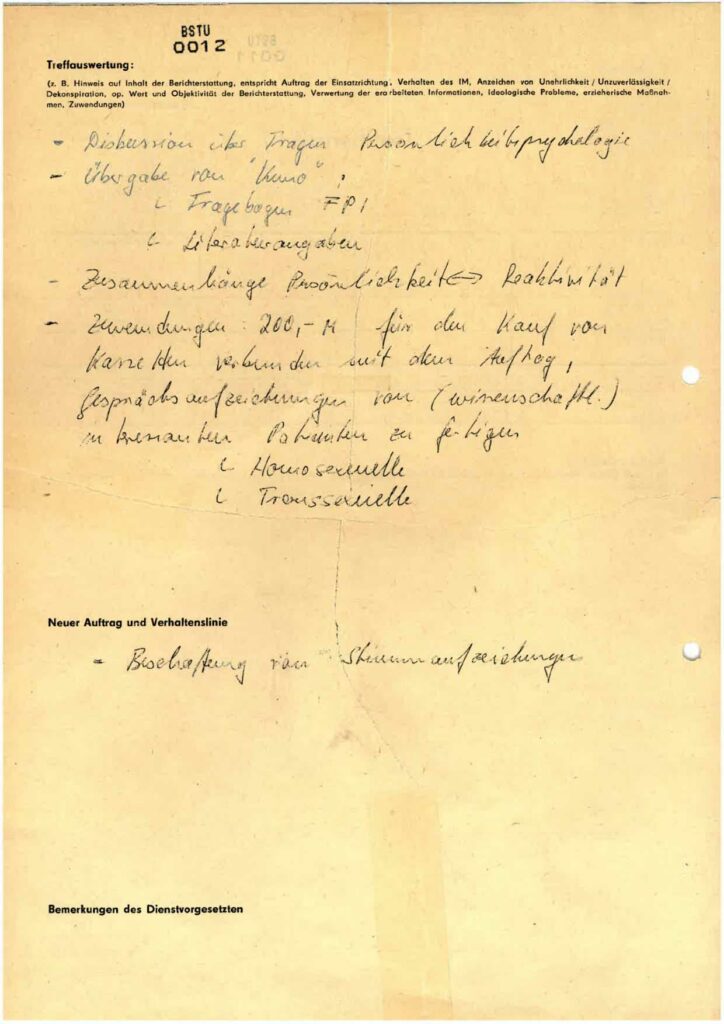 BSTU
0012
Treffauswertung:
(z. B. Hinweis auf Inhalt der Berichterstattung, entspricht Auftrag der Einsatzrichtung, Verhalten des IM, Anzeichen von Unehrlichkeit / Unzuverlässigkeit /
Dekonspiration, op. Wert und Objektivität der Berichterstattung, Verwertung der erarbeiteten Informationen, Ideologische Probleme, erzieherische Maßnah-
men, Zuwendungen)
- Diskussion über Fragen Persönlichkeitspsychologie
- Übergabe von "Kuno":
Fragebogen FPI
Literaturangaben
- Zusammenhänge Persönlichkeit <-> Reaktivität
- Zuwendungen: 200,- M für den Kauf von
Kassetten verbunden mit dem Auftrag,
Gesprächsaufzeichnungen von (wissenschaftl.)
interessanten Patienten zu fertigen
Homosexuelle
Transsexuelle
Neuer Auftrag und Verhaltenslinie
- Beschaffung von Stimmaufzeichnungen
Bemerkungen des Dienstvorgesetzten